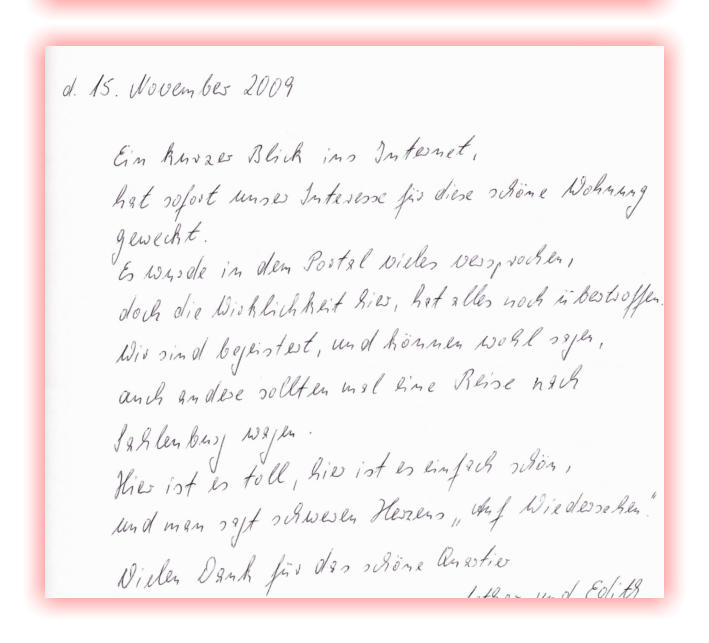 d. 15. November 2009
Ein kurzer Blick ins Internet,
hat sofort unser Interesse für diese schöne Wohnung
geweckt.
Es wurde in dem Portal vieles versprochen,
doch die Wirklichkeit hier, hat alles noch übertroffen.
Wir sind begeistert, und können wohl sagen,
auch andere sollten mal eine Reise nach
Sahlenburg wagen.
Hier ist es toll, hier ist es einfach schön,
und man sagt schweren Herzens „Auf Wiedersehen."
Vielen Dank für das schöne Quartier
Lothar und Edith